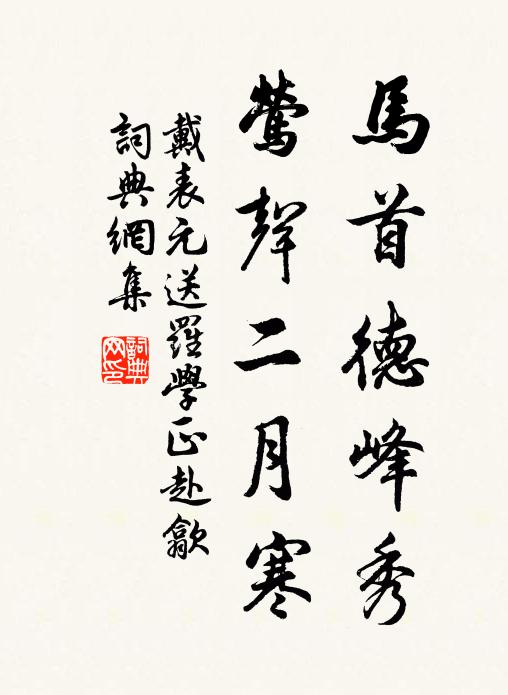 馬首德峰秀
鶯聲二月寒
戴表元送羅學正赴歙
詞典網集
詞典網印